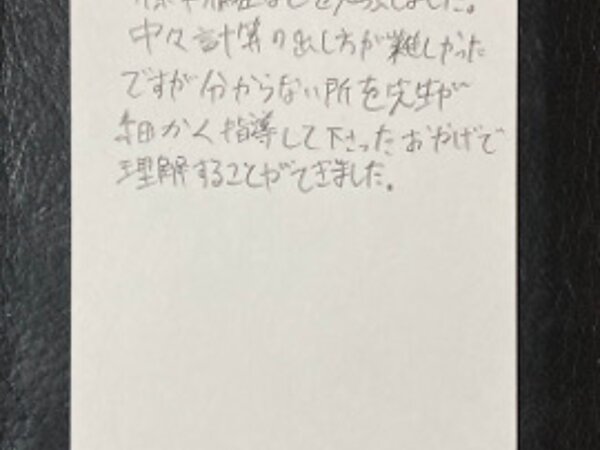 标準偏差などを勉強しました。
中々計算の出し方が難しかった
ですが分からない所を先生が
細かく指導して下さったおかげで
理解することができました。